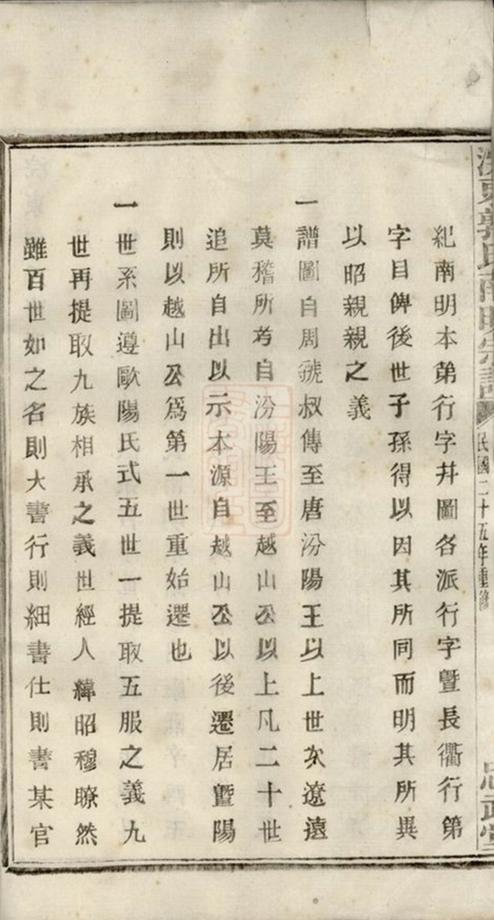 民國二十五年重修
紀南明本第行字井圖各派行字暨長衢行第
字目俾後世子孫得以因其所同而明其所異
以昭親親之義
一譜圖自周虢叔傳至唐汾陽王以上世次遼遠
莫稽所考自汾陽王至越山公以上凡二十世
追所自出以示本源自越山公以後遷居暨陽
則以越山公爲第一世重始遷也
一世系圖遵歐陽氏式五世一提取五服之義九
世再提取九族相承之義世經人緯昭穆瞭然
雖百世如之名則大書行則細書仕則書某官